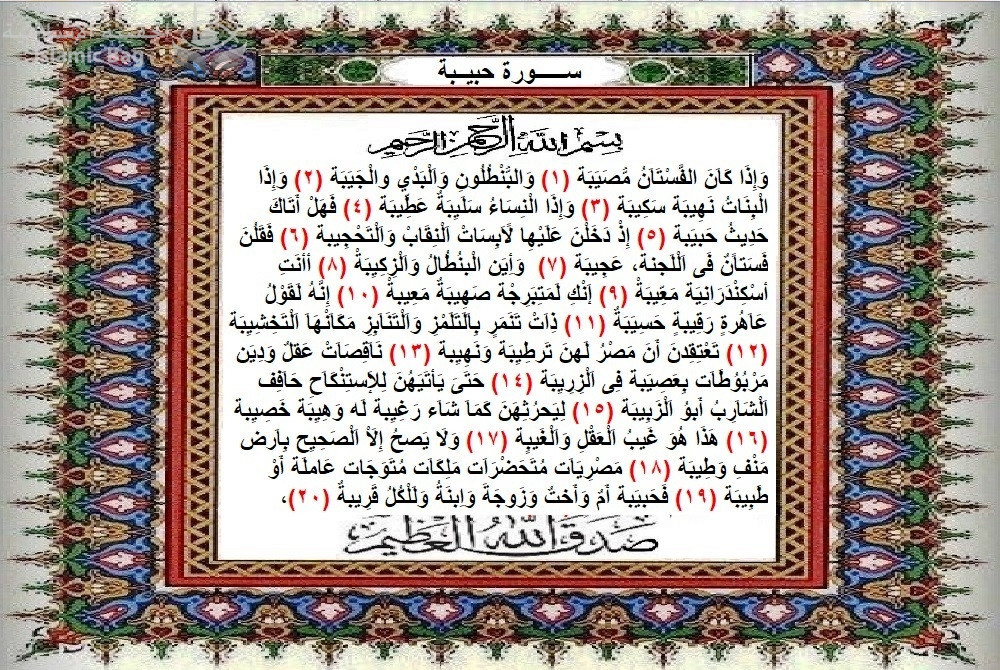 Islamic Bag
ســـورة حبيـبة
بسم الله الرحمن الرحيم
وَإِذَا كَانَ الفُسْتَانُ مُصيَبَة (١) وَالبَّنْطُلُونِ وَالْبَدْيِ والْجَيَبَة (٢) وَإِذَا
الْبِنَاتُ نَهِيَبَة سَكِيبَة (٣) وَإِذَا الْنِسَاءُ سَلَيِبَةٌ عَطَيِبَة (٤) فَهَلْ أَتَاكَ
حَدِيثُ حَبيَبَة (٥) إِذْ دَخَلْنَ عَلَيْهَا لَابِسَاتُ اَلْنِقَابْ وَالْتَحْجِيبة (٦) فَقَلْنَ
فَسَتَانٌ فَى اللَجنة، عَجِيَبة (٧) وَأيَن الْبِنُطُالُ وَالْزَكِيَبَةُ (٨) أأنَتِ
أسْكَنْدَرَانِيَة مَعْيِبَةُ (٩) إنْكِ لَمَتَبَرِجْة صَهِيَبَة مَعِيبةٌ (١٠) إِنَّهُ لَقَوْلُ
عَاهُرةٍ رَقَيِبةٍ حَسِيَبَةُ (١١) ذَاتْ تَنَمَرٍ بِالَتَلَمْزْ وَالْتَنَابَزِ مَكَانُهَا اَلْتَخْشِيَبة
(١٢) تَعْتَقِدنَ أنَ مَصْرُ لَهنَ تَرطِيبَة وَنَهِيبة (١٣) نَاقِصَاتْ عَقَلْ وَدِيَن
مَرْبُوُطَات بِعَصيَبة فِى اَلْزَرِيبَة (١٤) حَتَىَ يَأتَيَهُنَ لِلإسَتِنْكَاحِ حَافِف
اَلْشَارَبُ أبوُ اَلْزَبِيبَة (١٥) لِيَحرُثَهُنَ كَمَا شَاءَ رَغِيبة لَه وَهِيَبَة خَصِيبة
(١٦) هَذَا هُوَ غَيبُ اَلْعَقْلِ وَالْغَيبةِ (١٧) وَلَا يَصحُ إِلَاْ الْصَحِيحِ بِأَرضِ
مَنْفِ وَطِيبَة (١٨) مَصْرِيَات مُتَحَضْرَات مَلِكَات مُتَوَجَات عَامَلَة أوْ
طَبِيبَة (١٩) فَحَبيَبة أمٌ وَأختُ وَزَوجَة وَابِنَةُ وَلَلْكُلْ قَرِيبةٌ (٢٠)،
صدق الله العظيم